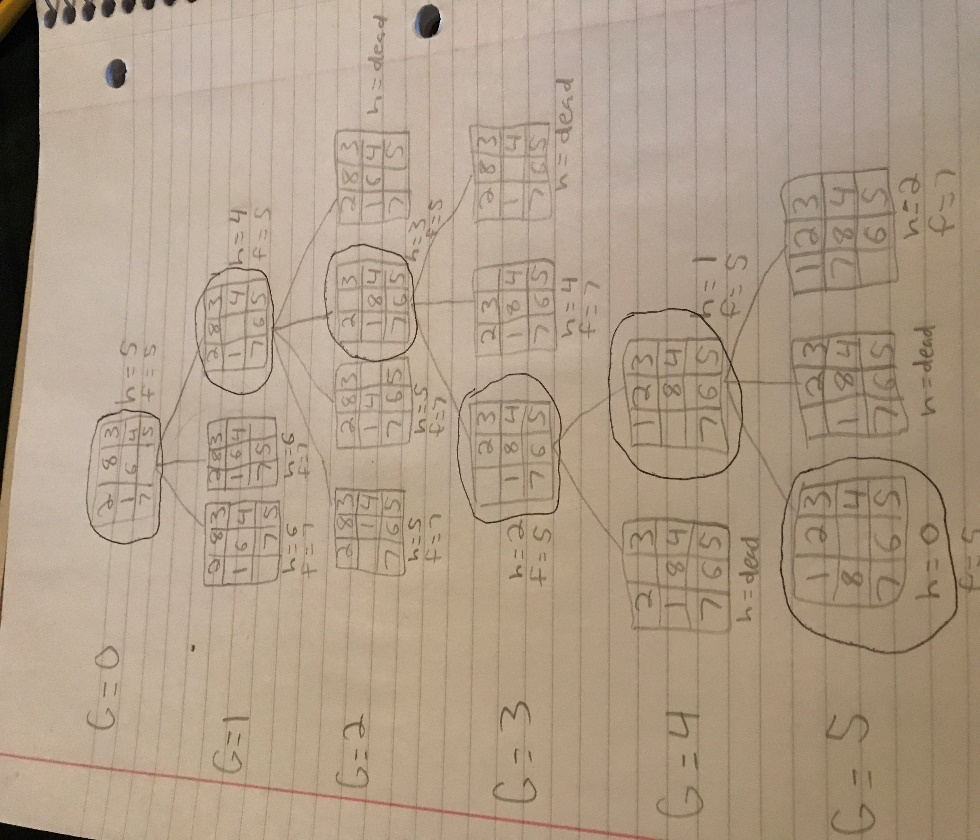 G=0
2 8 3
1 6 4
7 5
h=5
f=5
G=1
2 8 3
1 6 4
7 5
h=6
f=7
2 8 3
1 6 4
7 5
h=6
f=7
2 8 3
1 4
7 6 5
h=4
f=5
G=2
2 8 3
1 4
7 6 5
h=5
f=7
2 8 3
1 4
7 6 5
h=5
f=7
2 3
1 8 4
7 6 5
h=3
f=5
2 8 3
1 6 4
7 5
h=dead
G=3
2 3
1 8 4
7 6 5
h=2
f=5
2 3
1 8 4
7 6 5
h=4
f=7
2 8 3
1 4
7 6 5
h=dead
G=4
2 3
1 8 4
7 6 5
h=dead
1 2 3
8 4
7 6 5
h=1
f=5
G=5
1 2 3
8 4
7 6 5
h=0
f=5
2 3
1 8 4
7 6 5
h=dead
1 2 3
7 8 4
6 5
h=2
f=7